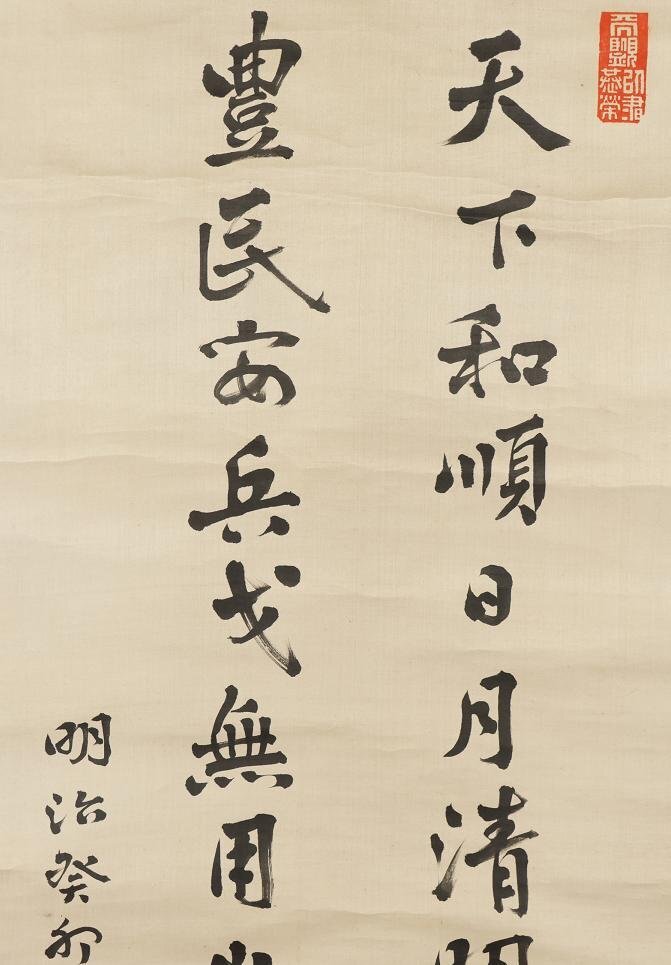 天下和順日月清明
豐民安兵戈無用
明治癸卯